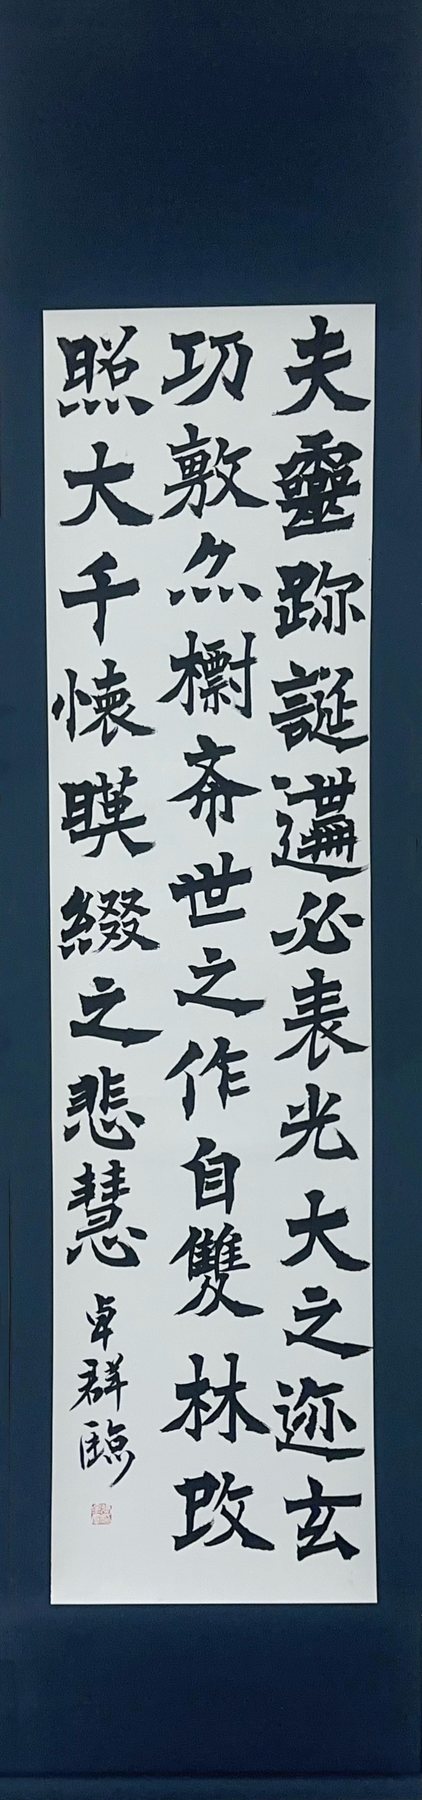 夫靈跡誕遘必表光大之迹玄
功敷亦標希世之作自雙林改
照大千懷暎綴之悲慧
卓群臨